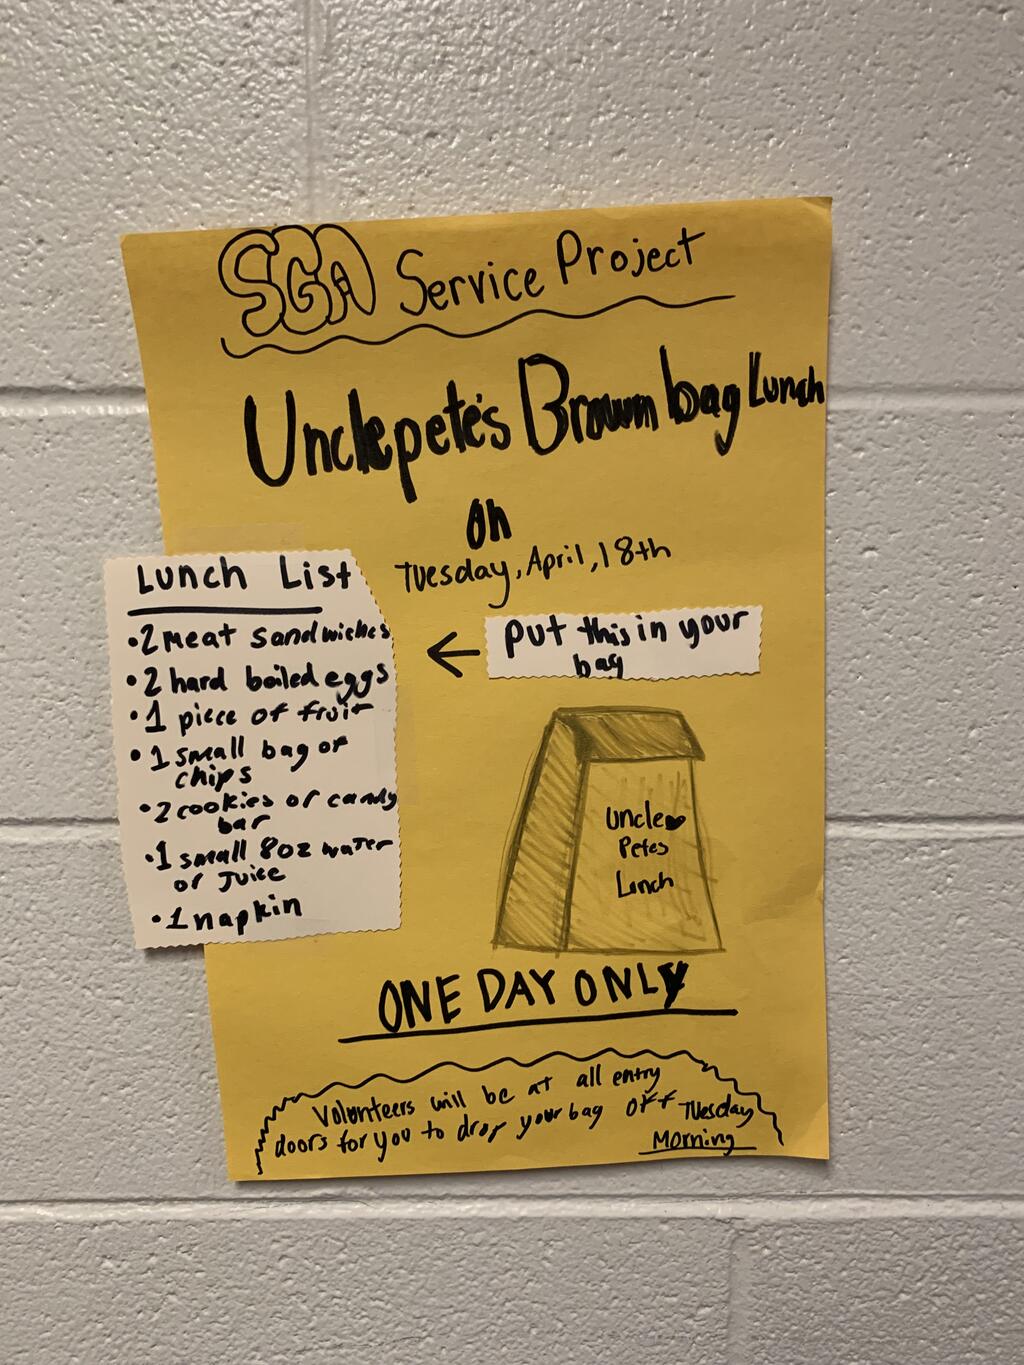 SGA Service Project
Unclepete's Brown bag Lunch
On
Tuesday, April, 18th
Lunch List
• 2 meat sandwiches
• 2 hard boiled eggs
• 1 piece of fruit
• 1 small bag of
chips
• 2 cookies or candy
bar
• 1 small 8oz water
or juice
• 1 napkin
← put this in your
bag
Uncle
Petes
Lunch
ONE DAY ONLY
Volunteers will be at all entry
doors for you to drop your bag off Tuesday
Morning